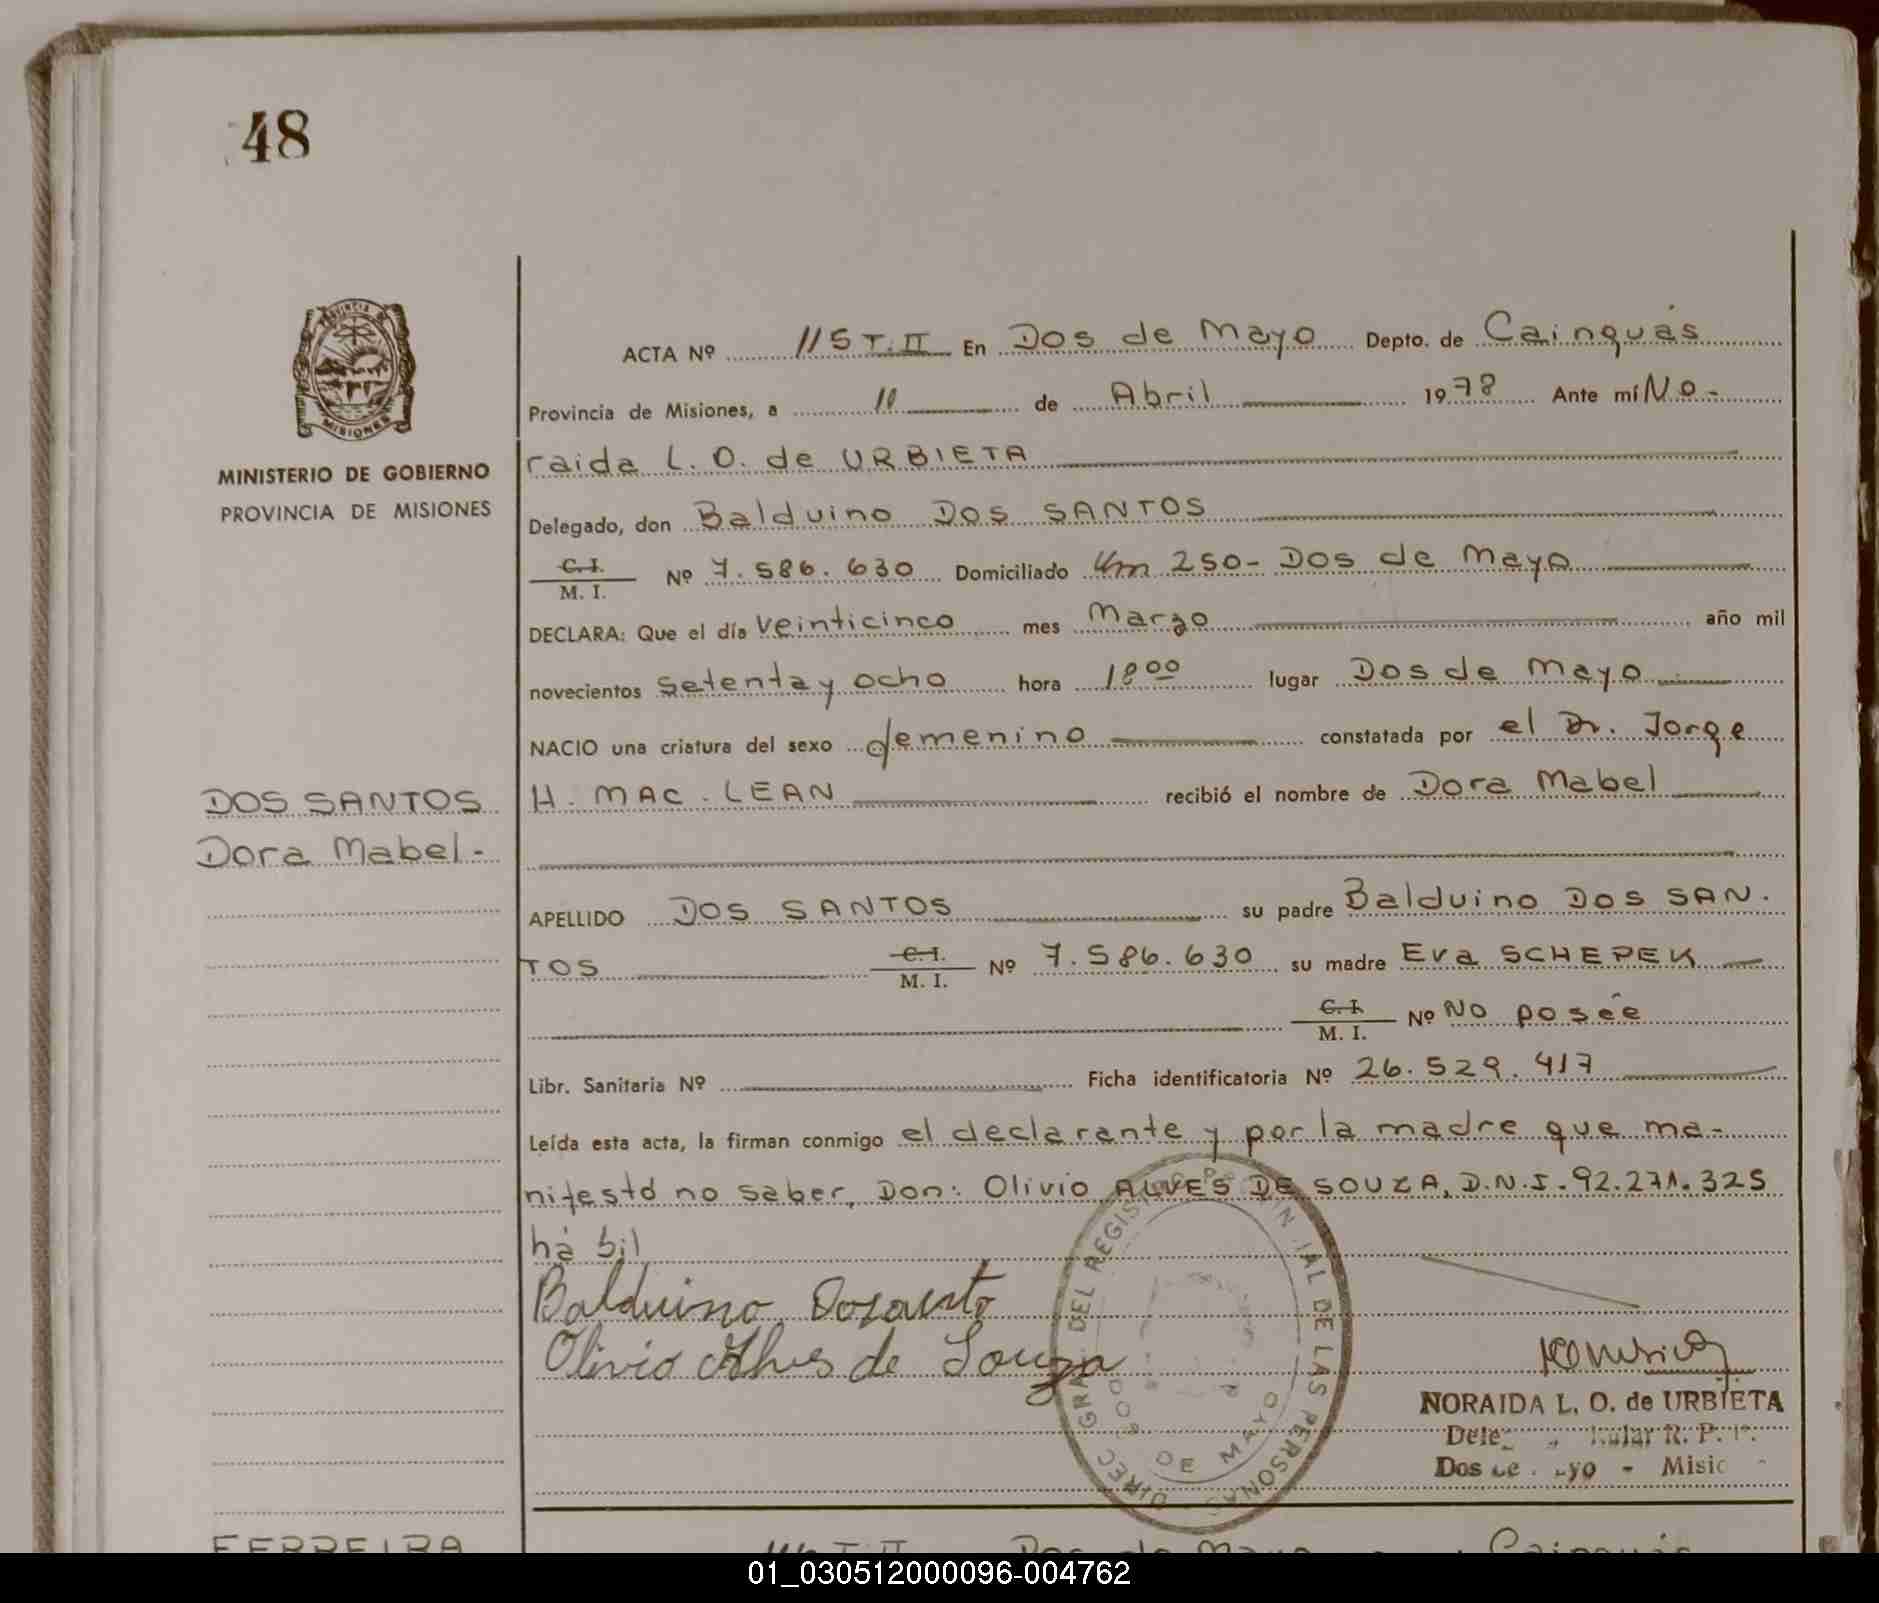 48
ACTA Nº 115 T. II En Dos de Mayo Depto. de Cainguás
Provincia de Misiones, a 10 de Abril 1978 Ante mí No-
raida L. O. de URBIETA
MINISTERIO DE GOBIERNO
PROVINCIA DE MISIONES
Delegado, don Balduino DOS SANTOS
C. I.
M. I. Nº 7.586.630 Domiciliado Km 250- Dos de Mayo
DECLARA: Que el día veinticinco mes Marzo año mil
novecientos setenta y ocho hora 18 00 lugar Dos de Mayo
NACIO una criatura del sexo femenino constatada por el Dr. Jorge
DOS SANTOS
Dora Mabel.-
H. MAC. LEAN recibió el nombre de Dora Mabel
APELLIDO DOS SANTOS su padre Balduino DOS SAN.
TOS C. I. M. I. Nº 7.586.630 su madre Eva SCHEPEK
C. I. M. I. Nº No posée
Libr. Sanitaria Nº Ficha identificatoria Nº 26.529.417
Leída esta acta, la firman conmigo el declarante y por la madre que ma-
nifestó no saber, Don: Olivio ALVES DE SOUZA, D.N.I. 92.271.325
hábil
Balduino Dosanto
Olivio Alves de Souza
NORAIDA L. O. de URBIETA
Dos de Mayo - Misio
DOS DE MAYO
FERREIRA
T. II Dos de Mayo Cainguás
01_030512000096-004762